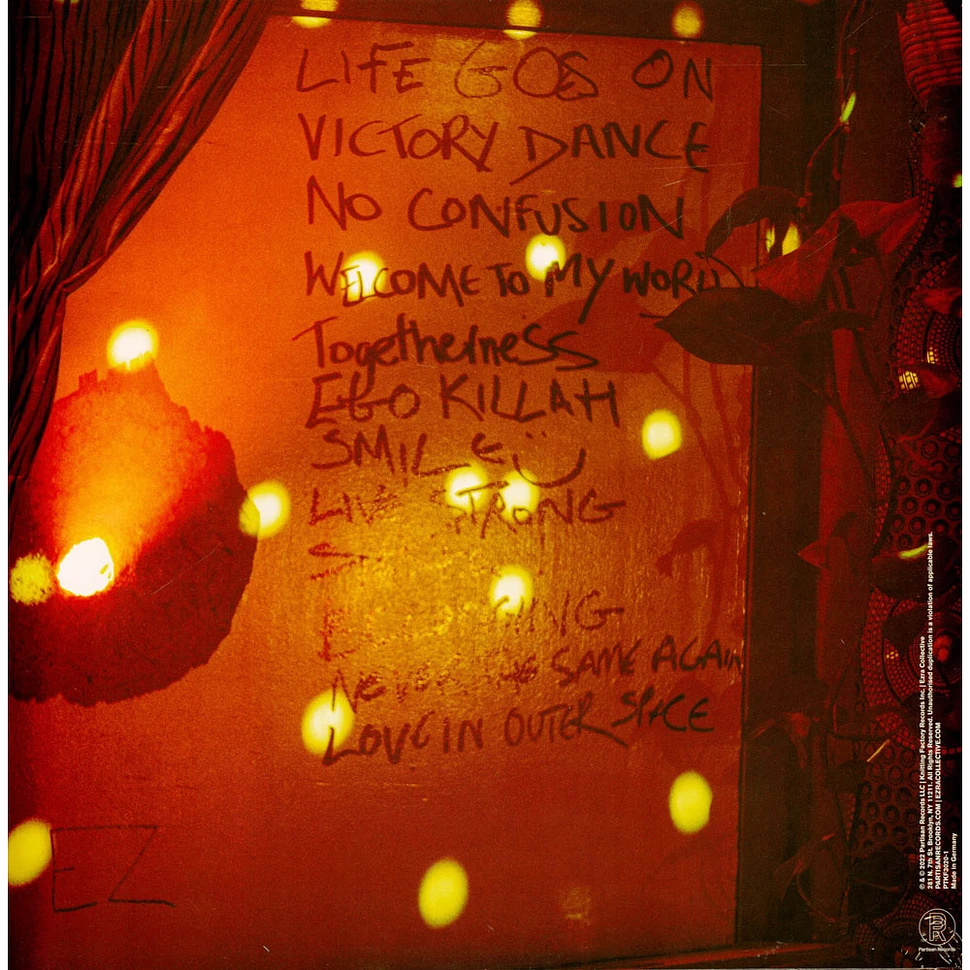 LIFE GOS ON
VICTORY DANCE
NO CONFUSION
WELCOME TO MY WORD
Togetherness
EGO KILLAH
SMILE
LIVE STRONG
NEVER THE SAME AGAIN
LOVE IN OUTER SPACE
EZ
℗ & © 2022 Partisan Records LLC | Knitting Factory Records Inc. | Ezra Collective
281 N. 7th St. Brooklyn, NY 11211. All Rights Reserved. Unauthorised duplication is a violation of applicable laws.
PARTISANRECORDS.COM | EZRACOLLECTIVE.COM
PTKF3020-1
Made in Germany
Partisan Records